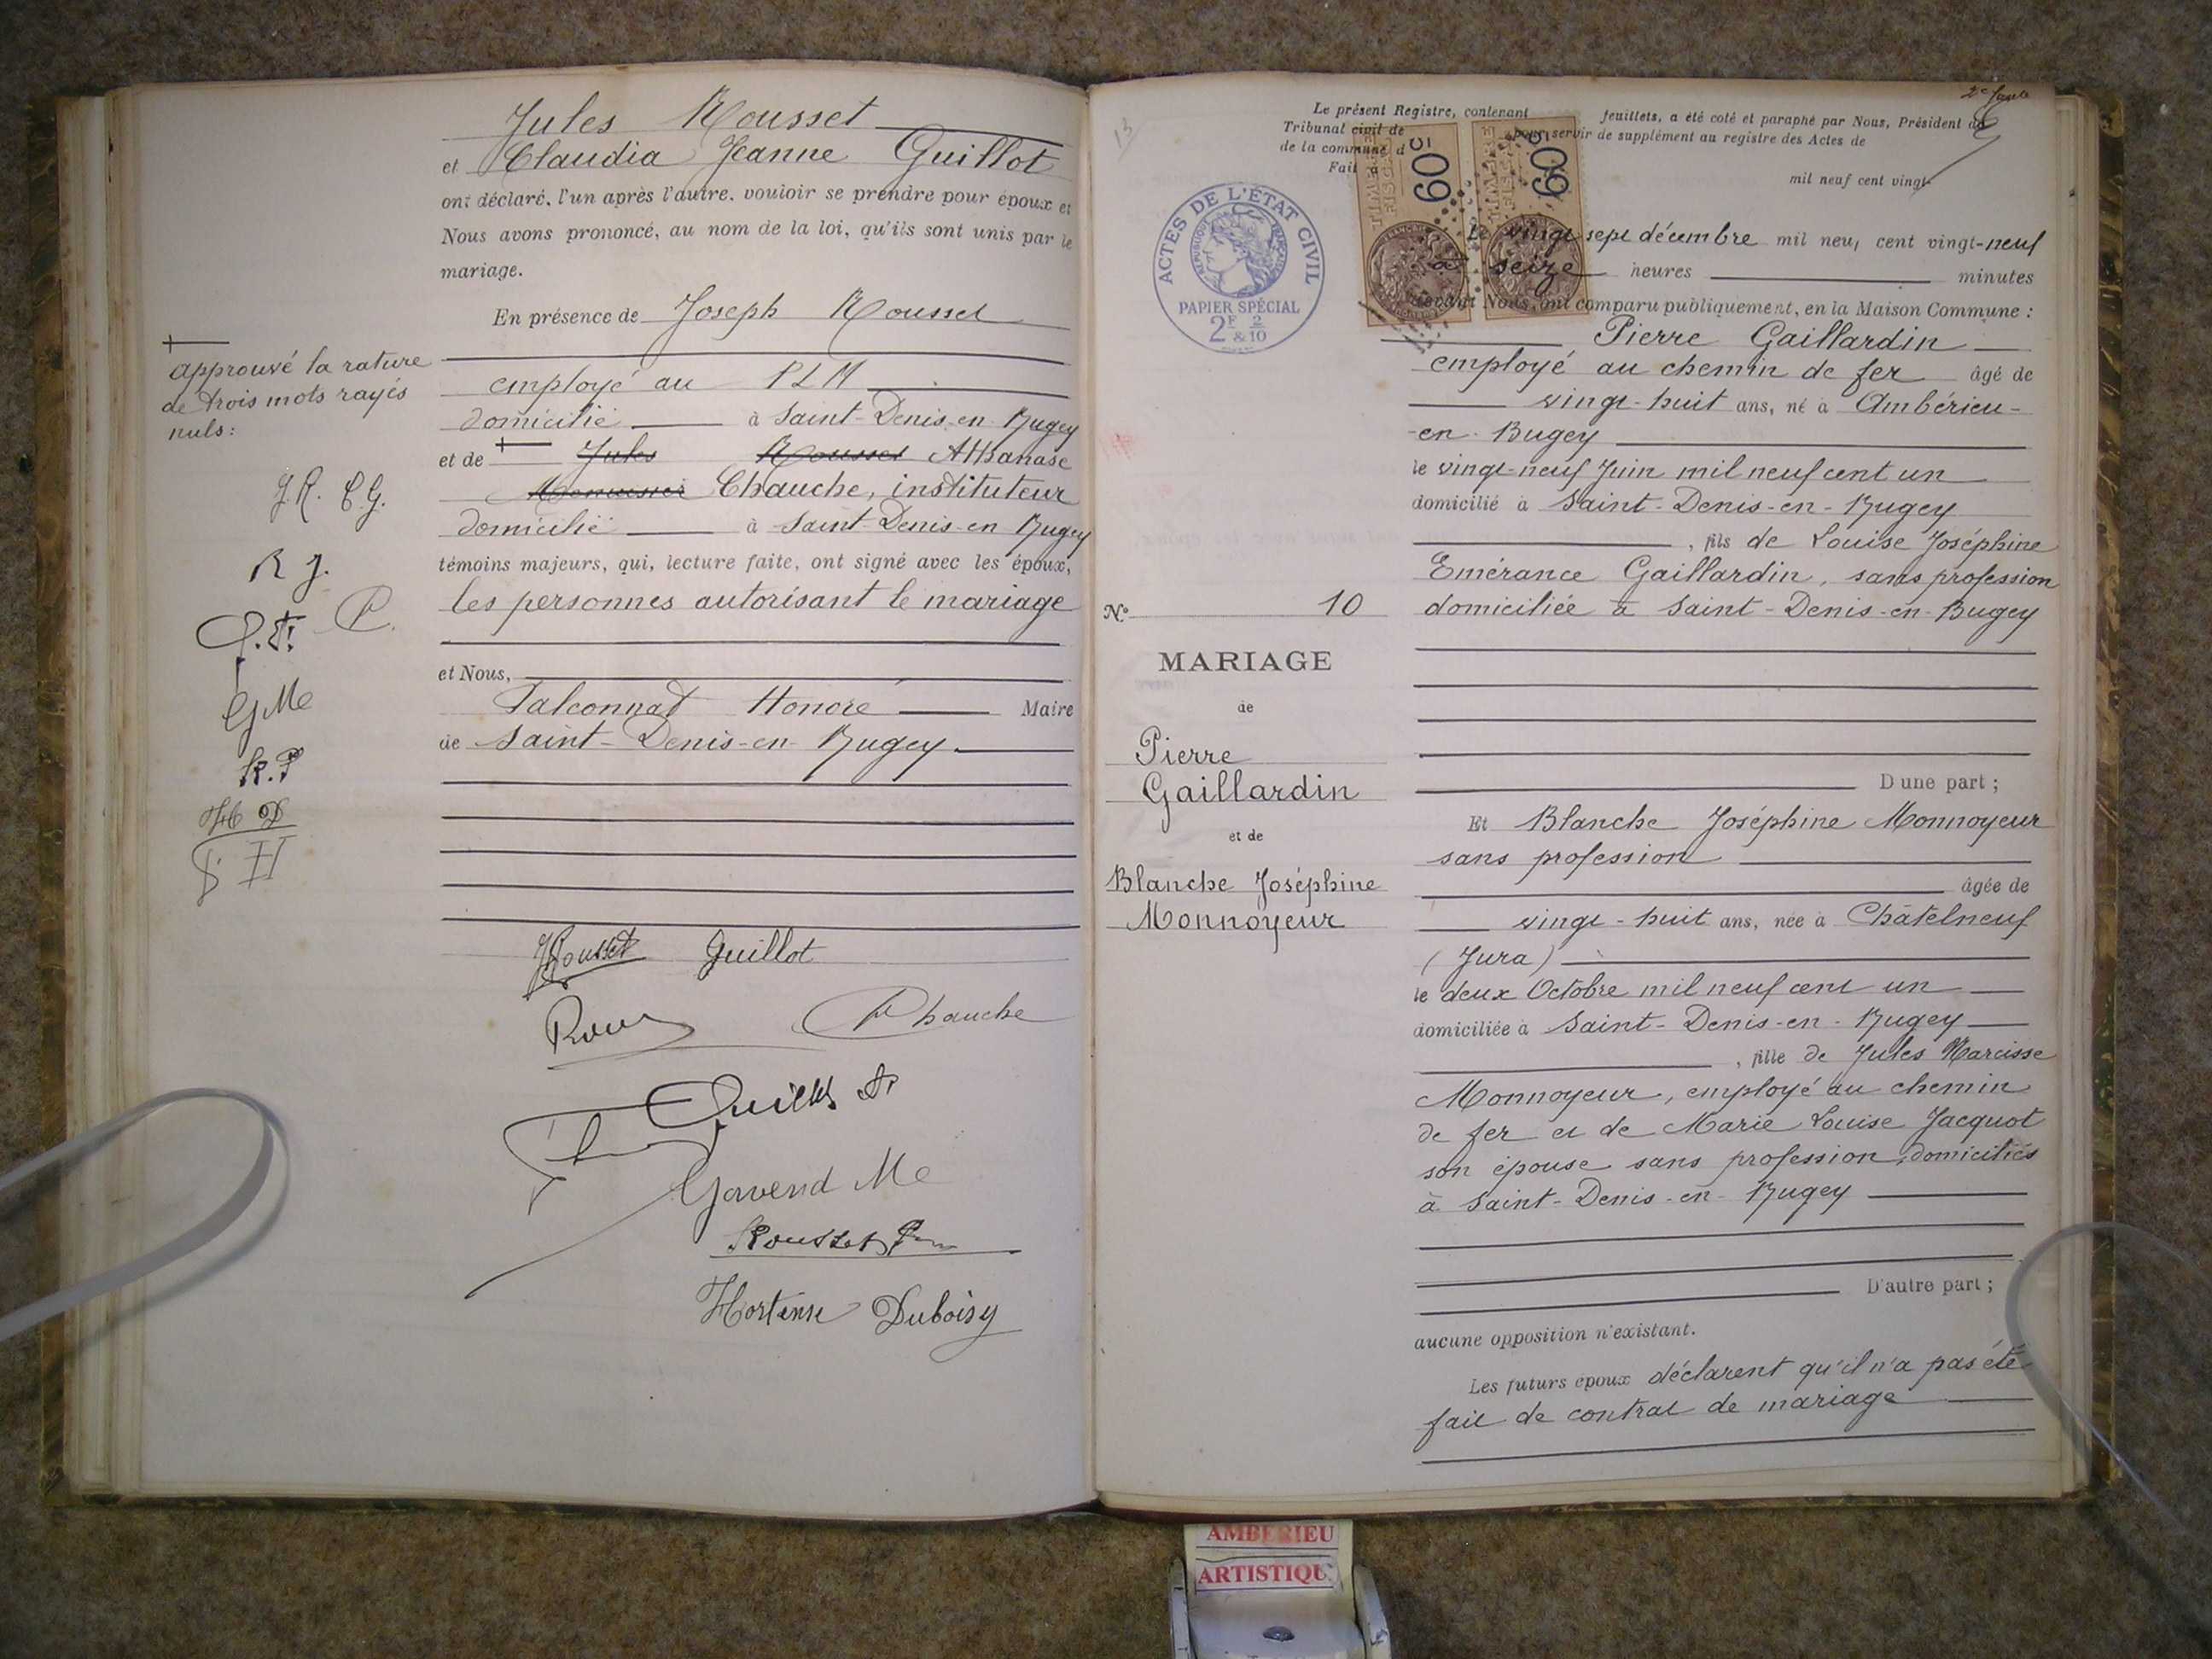 Jules Rousset
et Claudia Jeanne Guillot
ont déclaré, l'un après l'autre, vouloir se prendre pour époux et
Nous avons prononcé, au nom de la loi, qu'ils sont unis par le
mariage.
En présence de Joseph Rousset
employé au PLM
domicilié à Saint-Denis-en-Bugey
et de Jules Rousset Athanase
Chauche, instituteur
domicilié à Saint-Denis-en Bugey
témoins majeurs, qui, lecture faite, ont signé avec les époux,
les personnes autorisant le mariage
et Nous,
Falconnat Honoré Maire
de Saint-Denis-en-Bugey
approuvé la rature
de trois mots rayés
nuls:
J.R. C.G.
R J.
C.
G Me
R.P
H D
J Rousset Guillot
Chauche
Gavend Me
Rousset
Hortense Duboisy
2e
13
Le présent Registre, contenant feuillets, a été coté et paraphé par Nous, Président du
Tribunal civil de pour servir de supplément au registre des Actes de
de la commune d
Fait à mil neuf cent vingt-
60c
60c
ACTES DE L'ÉTAT CIVIL
PAPIER SPÉCIAL
2F & 2/10
Le vingt-sept décembre mil neuf cent vingt-neuf
à seize heures minutes
devant Nous, ont comparu publiquement, en la Maison Commune :
Pierre Gaillardin
employé au chemin de fer âgé de
vingt-huit ans, né à Ambérieu-
-en-Bugey
le vingt-neuf Juin mil neuf cent un
domicilié à Saint-Denis-en-Bugey
, fils de Louise Joséphine
Emérance Gaillardin, sans profession
domiciliée à Saint-Denis-en-Bugey
D'une part ;
Et Blanche Joséphine Monnoyeur
sans profession
âgée de
vingt-huit ans, née à Châtelneuf
(Jura)
le deux Octobre mil neuf cent un
domiciliée à Saint-Denis-en-Bugey
, fille de Jules Narcisse
Monnoyeur, employé au chemin
de fer et de Marie Louise Jacquot
son épouse sans profession, domiciliés
à Saint-Denis-en-Bugey
D'autre part ;
aucune opposition n'existant.
Les futurs époux déclarent qu'il n'a pas été
fait de contrat de mariage
N° 10
MARIAGE
de
Pierre
Gaillardin
et de
Blanche Joséphine
Monnoyeur
AMBERIEU
ARTISTIQU